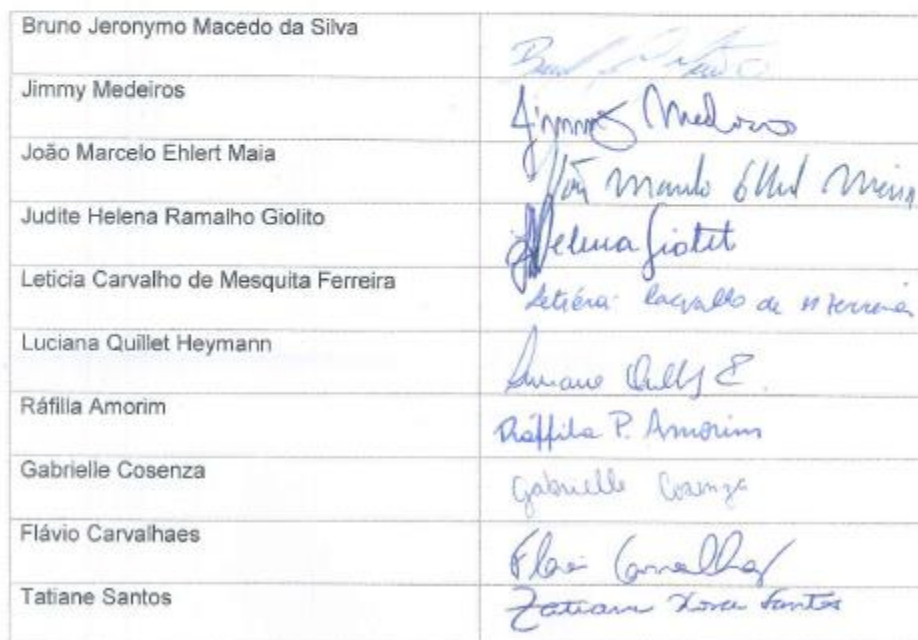 Bruno Jeronymo Macedo da Silva
Jimmy Medeiros
Jimmy Medeiros
João Marcelo Ehlert Maia
João Marcelo Ehlert Maia
Judite Helena Ramalho Giolito
Helena Giolit
Leticia Carvalho de Mesquita Ferreira
Leticia Carvalho de M Ferreira
Luciana Quillet Heymann
Ráfilla Amorim
Ráffila P. Amorim
Gabrielle Cosenza
Gabrielle Cosenza
Flávio Carvalhaes
Tatiane Santos
Tatiane Santos